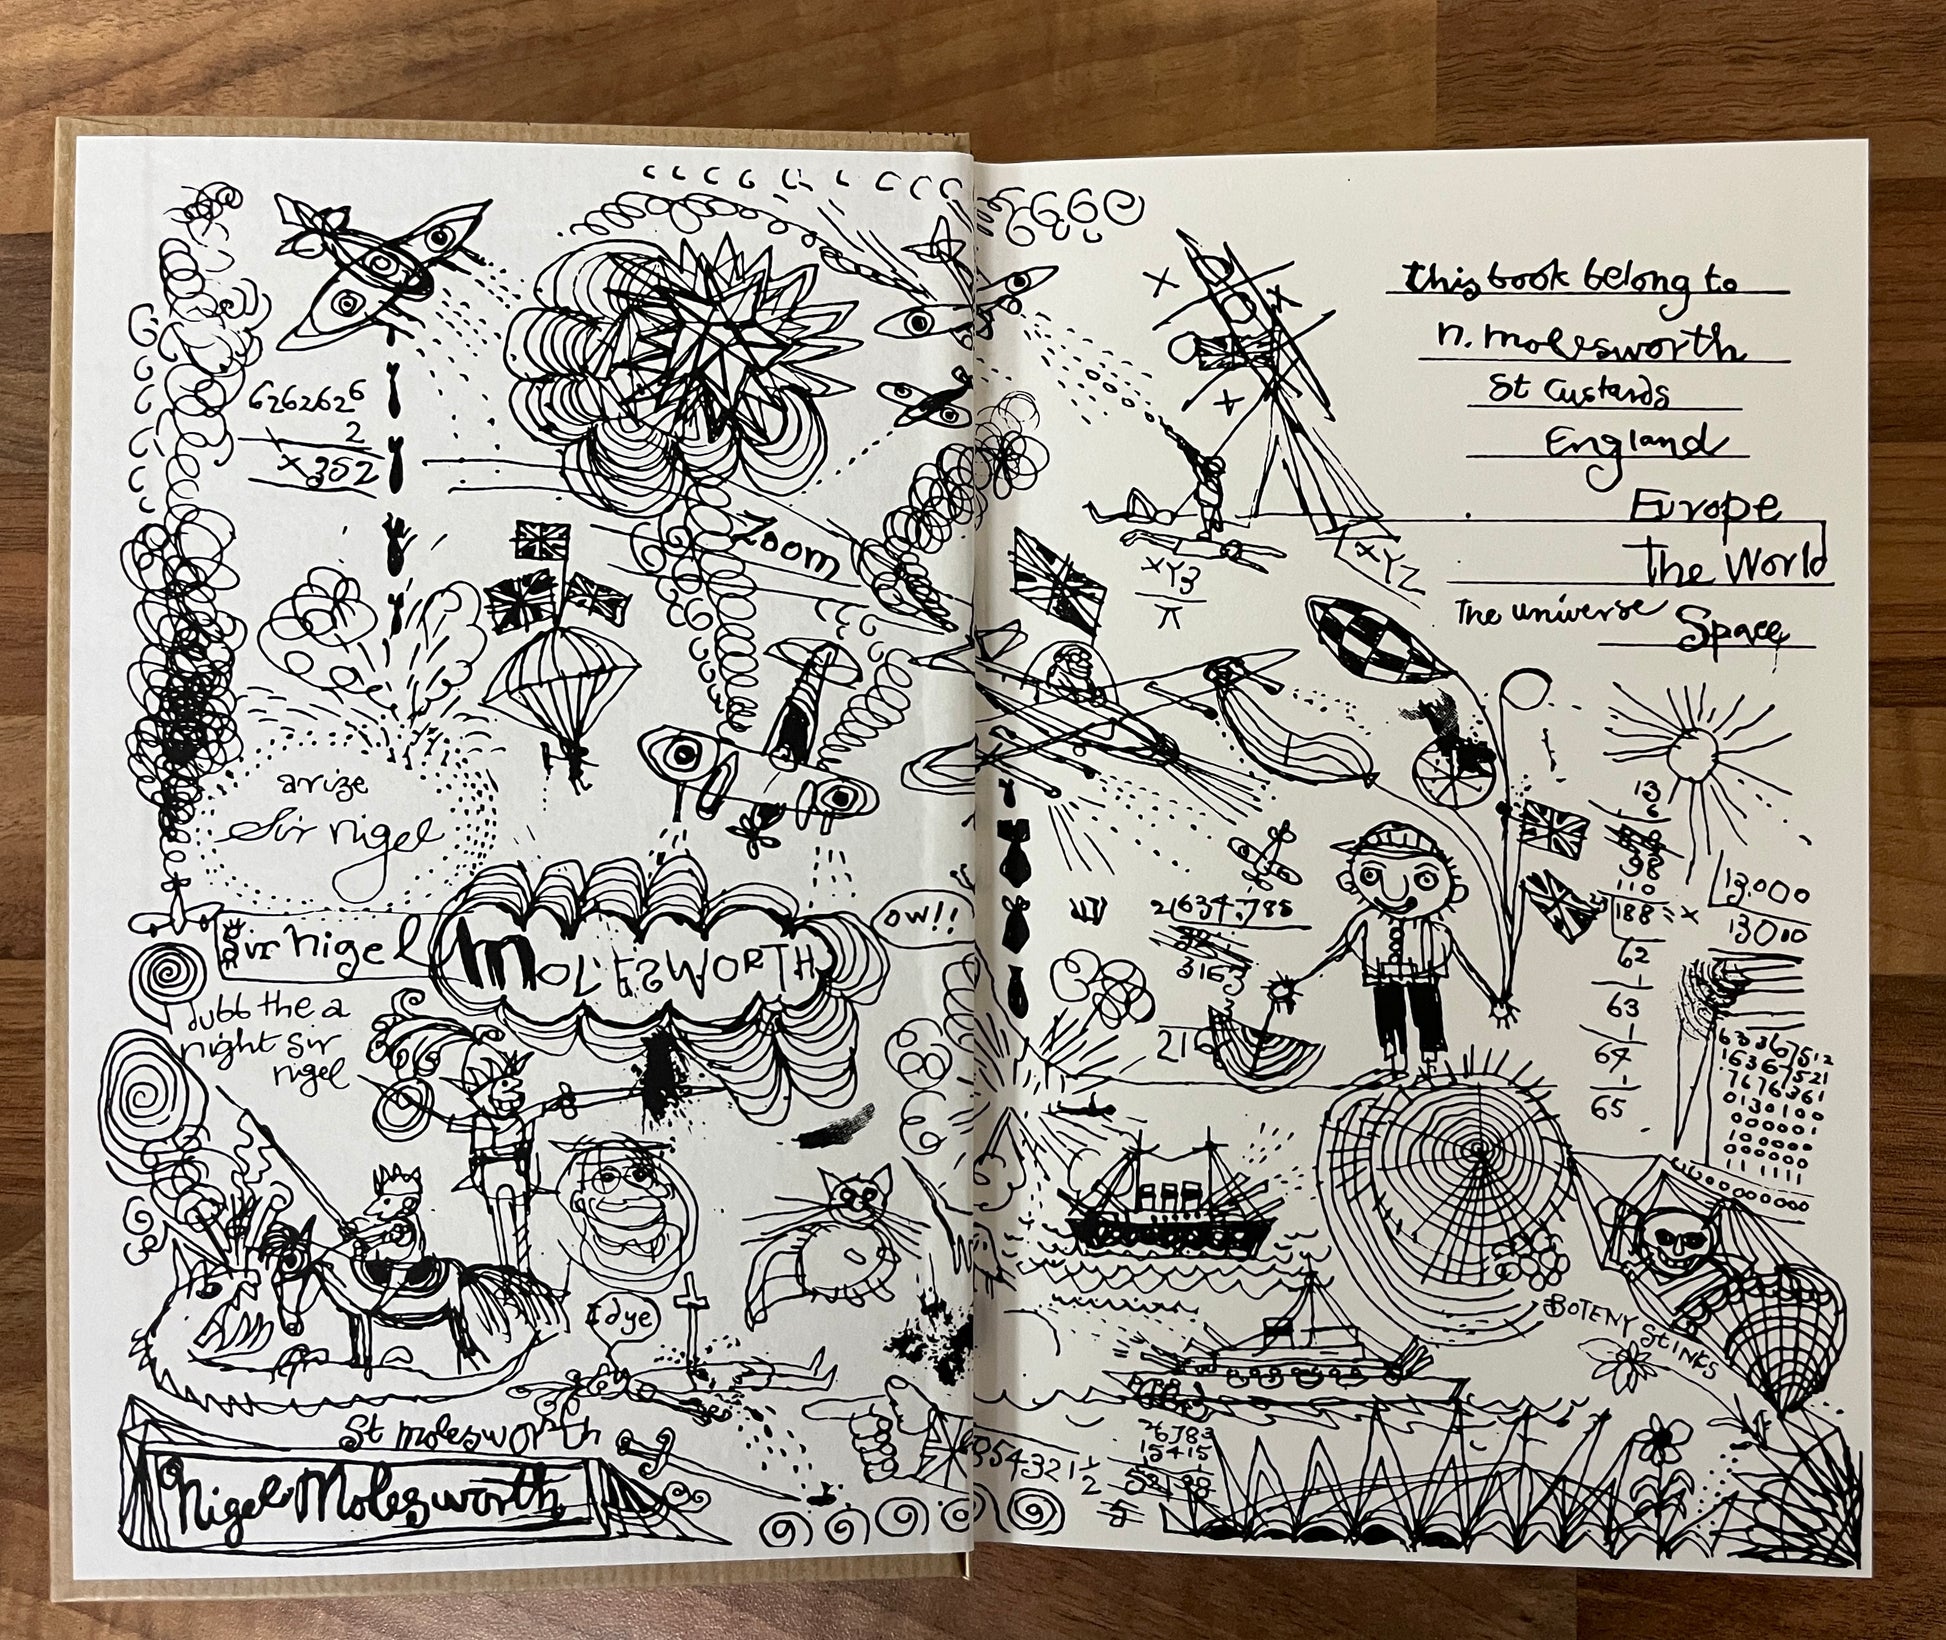 6262626
2
x 352
Zoom
arize
Sir nigel
Sir Nigel
MOLESWORTH
OW!!
dubb the a
night sir
nigel
I dye
St molesworth
Nigel Molesworth
this book belong to
n. molesworth
St Custards
England
Europe
The World
The universe
Space
XY3
π
XYZ
13
6
98
110
188 = x
62
1
63
1
64
1
65
13.000
2 634.785
3163
216
16367521
7676361
0130100
000001
100000
000000
BOTENY STINKS
54321
2
26783
15415
5